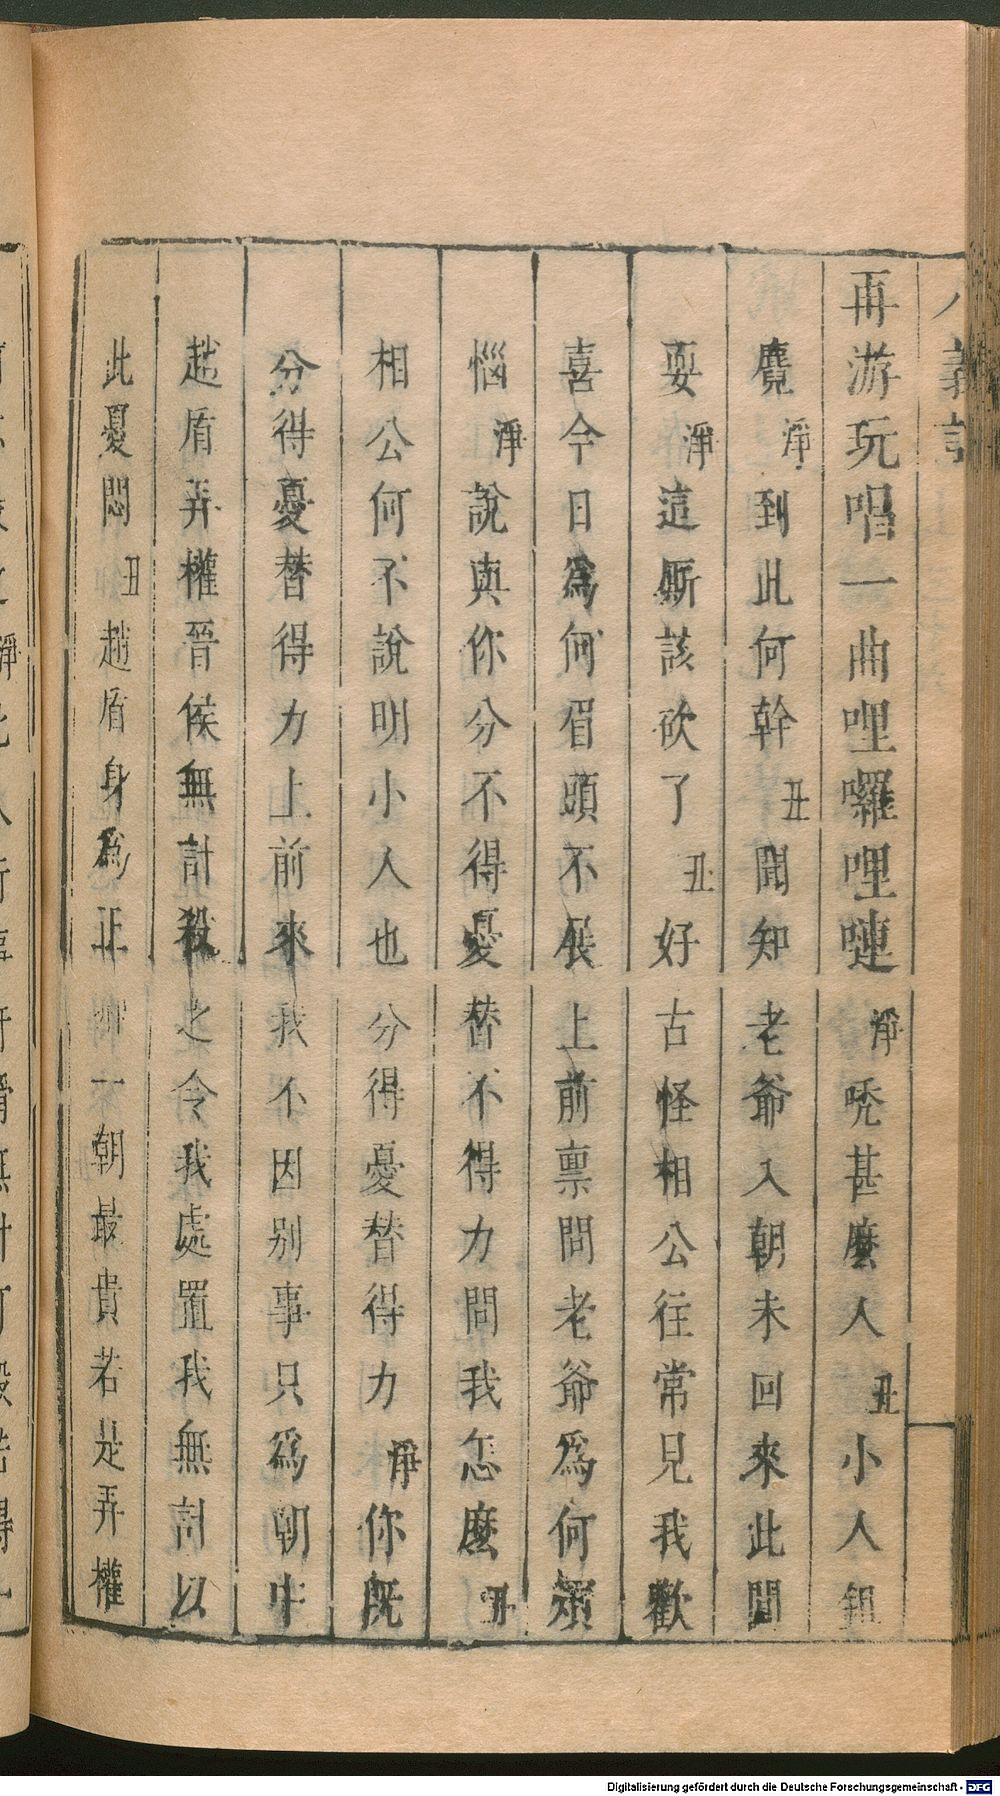 八義記
再游玩唱一曲哩囉哩嗹淨唗甚麼人丑小人鉏
麑淨到此何幹丑聞知老爺入朝未回來此閒
耍淨這厮該砍了丑好古怪相公往常見我歡
喜今日爲何眉頭不展上前禀問老爺爲何煩
惱淨說與你分不得憂替不得力問我怎麼丑
相公何不說明小人也分得憂替得力淨你既
分得憂替得力上前來我不因別事只爲朝中
趙盾弄權晉侯無計殺之令我處置我無計以
此憂悶丑趙盾身爲正卿一朝最貴若是弄權
Digitalisierung gefördert durch die Deutsche Forschungsgemeinschaft - DFG